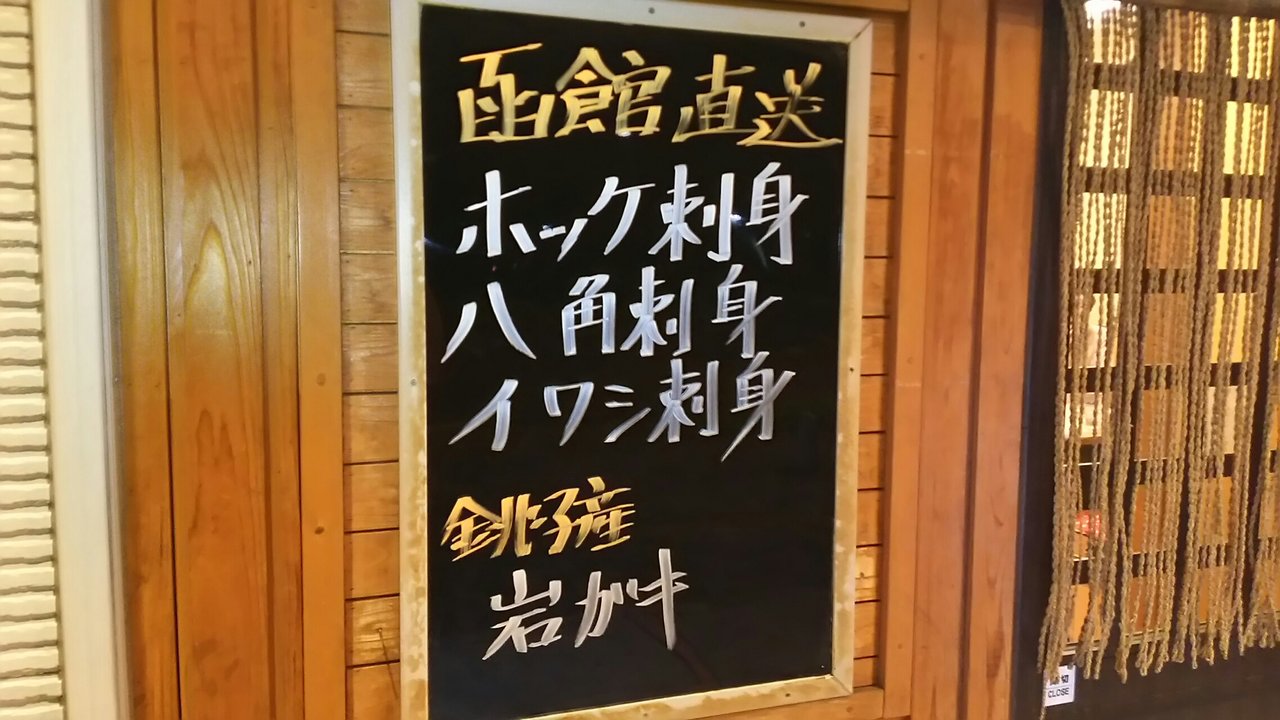 函館直送
ホッケ刺身
八角刺身
イワシ刺身
銚子産
岩ガキ
CLOSE